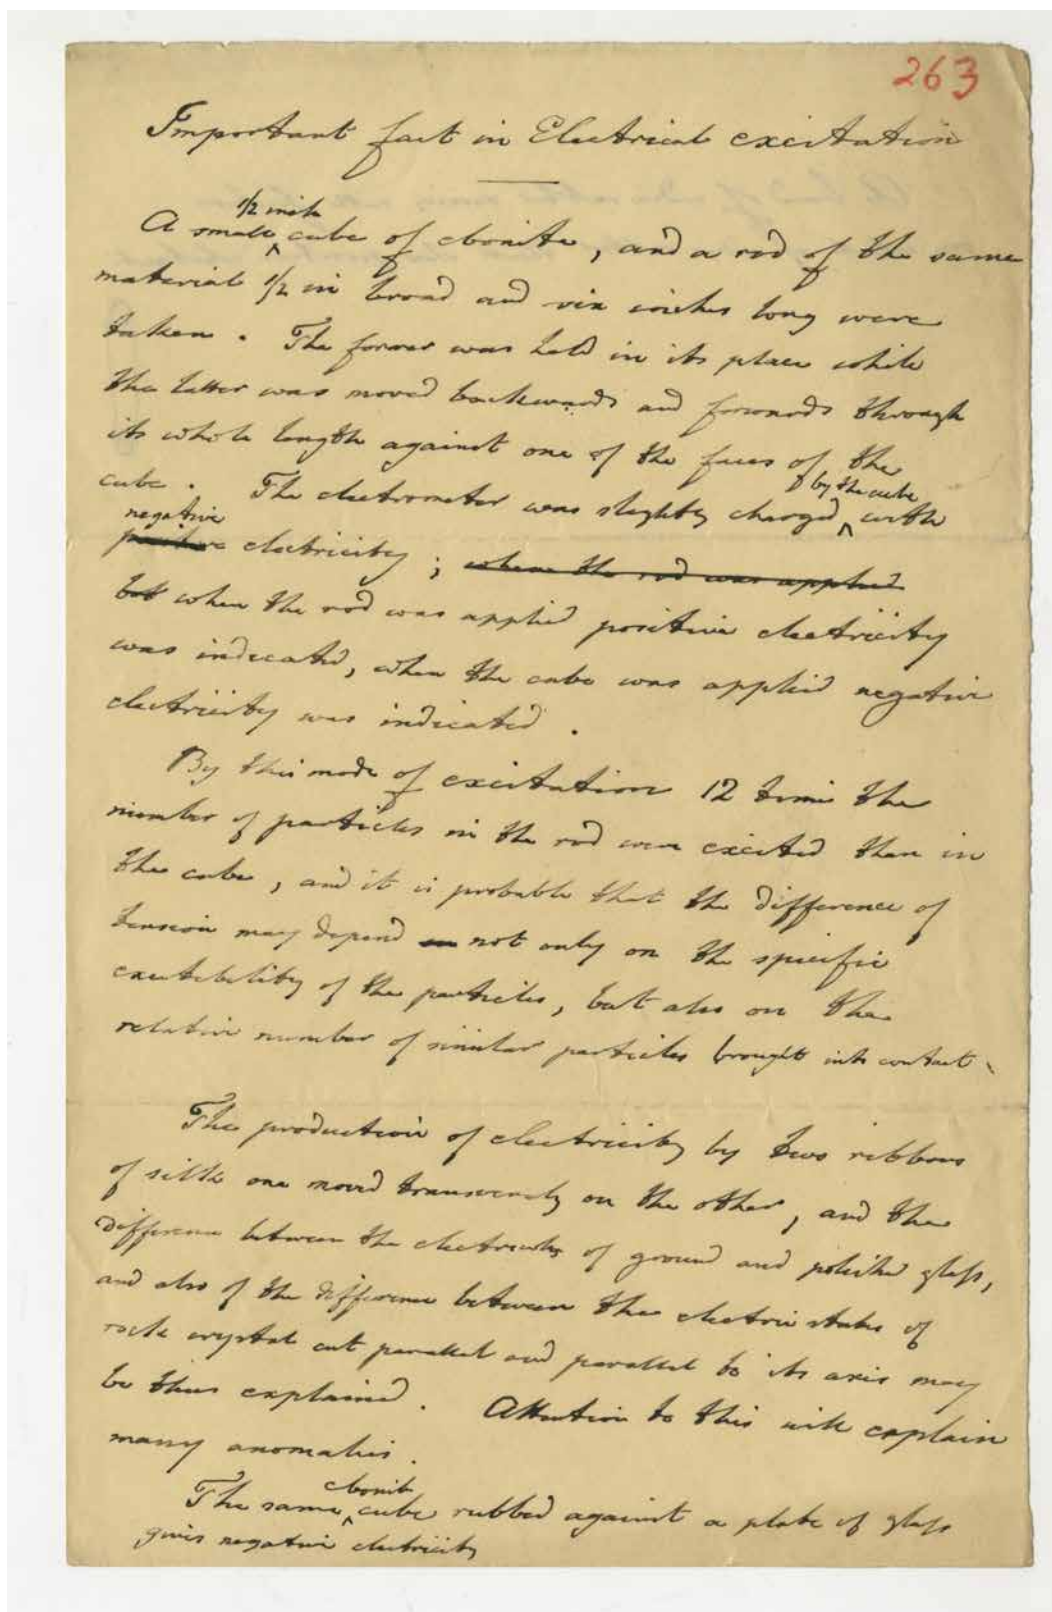 263
Important fact in Electrical excitation
1/2 inch
A small cube of ebonite, and a rod of the same
material 1/2 in broad and six inches long were
taken. The former was held in its place while
the latter was moved backwards and forwards through
its whole length against one of the faces of the
by the cube
cube. The electrometer was slightly charged with
negative
positive electricity; when the rod was applied
but when the rod was applied positive electricity
was indicated, when the cube was applied negative
electricity was indicated.
By this mode of excitation 12 times the
number of particles in the rod were excited than in
the cube, and it is probable that the difference of
tension may depend on not only on the specific
excitability of the particles, but also on the
relative number of similar particles brought into contact.
The production of electricity by two ribbons
of silk one moved transversely on the other, and the
difference between the electricity of ground and polished glass,
and also of the difference between the electric states of
rock crystal cut parallel and parallel to its axis may
be thus explained. Attention to this will explain
many anomalies.
ebonite
The same cube rubbed against a plate of glass
gives negative electricity